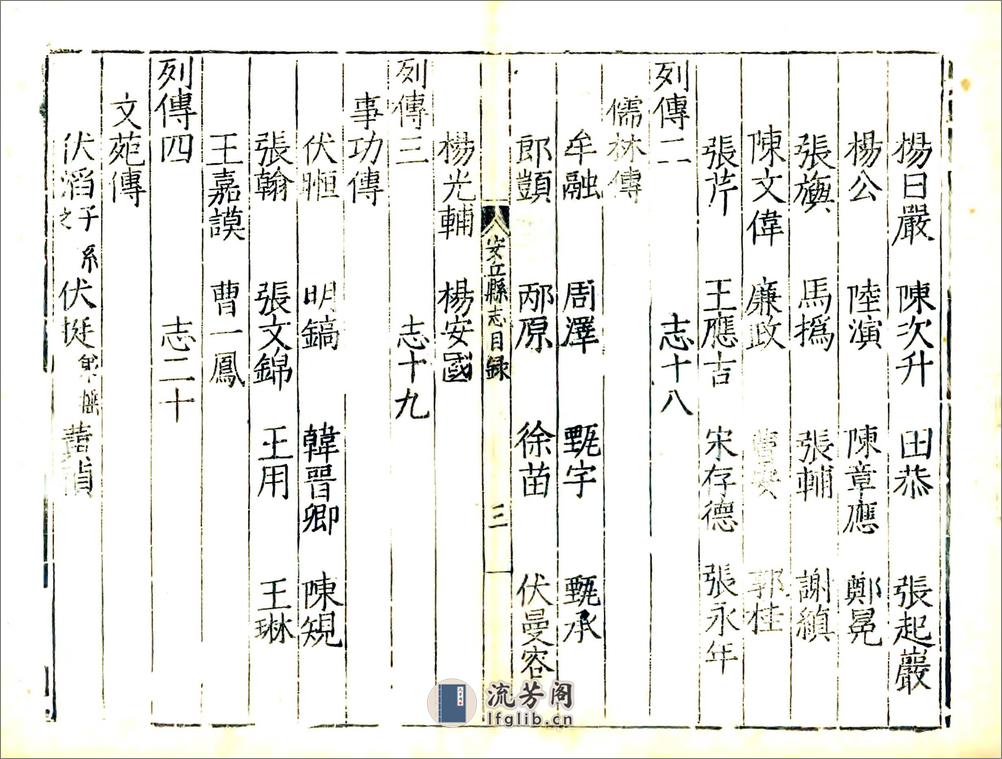 楊日嚴 陳次升 田㳟 張起巖
楊公 陸演 陳章應 鄭冕
張旟 馬撝 張輔 謝縝
陳文偉 廉政 郭桂
張芹 王應吉 宋存德 張永年
列傳二 志十八
儒林傳
牟融 周澤 甄宇 甄承
郎顗 邴原 徐苗 伏曼容
安丘縣志目録 三
楊光輔 楊安國
列傳三 志十九
事功傳
伏暅 明鎬 韓晉卿 陳規
張翰 張文錦 王用 王琳
王嘉謨 曹一鳳
列傳四 志二十
文苑傳
伏滔 子系之 伏挺
流芳阁
lfglib.cn